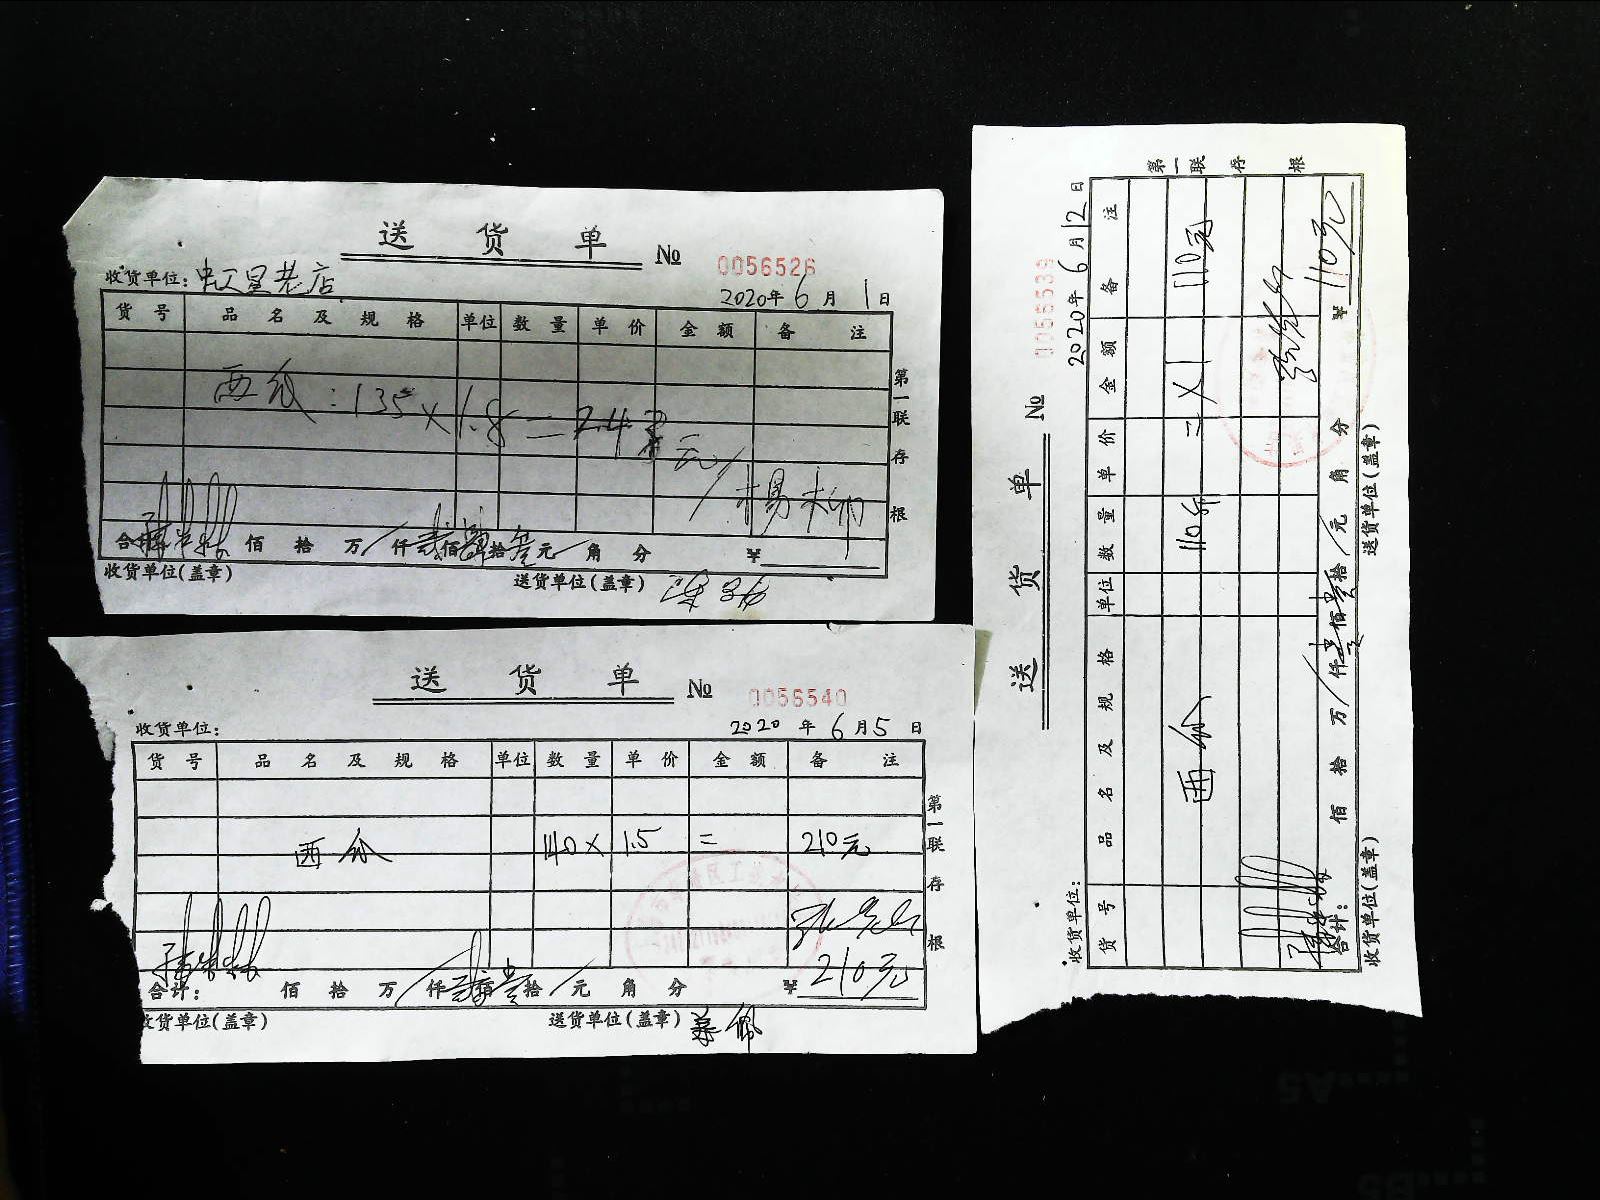 送 货 单 № 0056526
收货单位:
2020年 6 月 1 日
货 号 品 名 及 规 格 单位 数 量 单 价 金 额 备 注
西瓜:135×1.8=243元
合计: 佰 拾 万 仟贰佰肆拾叁元 角 分 ¥
收货单位(盖章) 送货单位(盖章)
第一联 存根
送 货 单 № 0056540
收货单位:
2020 年 6 月 5 日
货 号 品 名 及 规 格 单位 数 量 单 价 金 额 备 注
西瓜 140 × 1.5 = 210元
合计: 佰 拾 万 仟贰佰壹拾 元 角 分 ¥ 210元
收货单位(盖章) 送货单位(盖章)
第一联 存根
送 货 单 № 0056539
收货单位:
2020年 6 月 12 日
货 号 品 名 及 规 格 单位 数 量 单 价 金 额 备 注
西瓜 110斤 ×1 110元
合计: 佰 拾 万 仟壹佰壹拾 元 角 分 ¥ 110元
收货单位(盖章) 送货单位(盖章)
第一联 存根